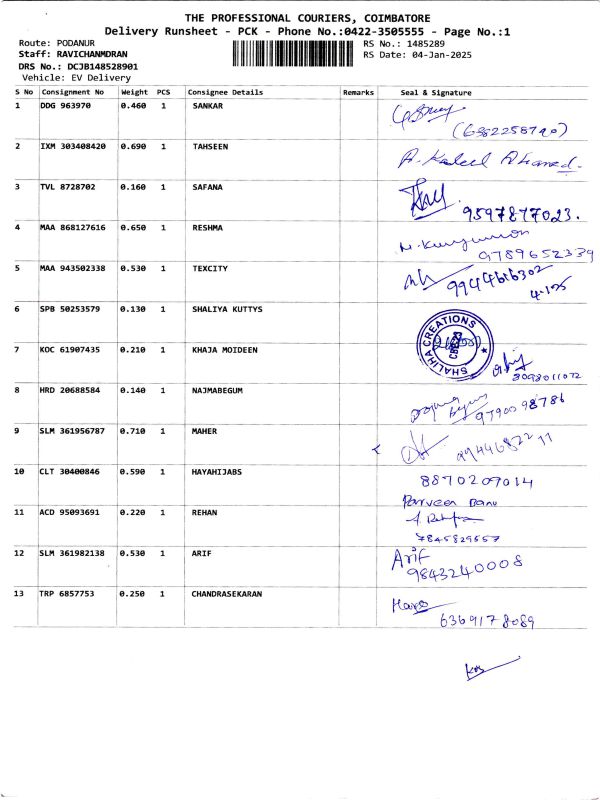 THE PROFESSIONAL COURIERS, COIMBATORE
Delivery Runsheet - PCK - Phone No.:0422-3505555 - Page No.:1
Route: PODANUR
RS No.: 1485289
Staff: RAVICHANMDRAN
RS Date: 04-Jan-2025
DRS No.: DCJB148528901
Vehicle: EV Delivery
S No Consignment No Weight PCS Consignee Details Remarks Seal & Signature
1 DDG 963970 0.460 1 SANKAR
2 IXM 303408420 0.690 1 TAHSEEN
A. Kaleel Ahamed.
3 TVL 8728702 0.160 1 SAFANA
9597877023.
4 MAA 868127616 0.650 1 RESHMA
9789652339
5 MAA 943502338 0.530 1 TEXCITY
9944616302
6 SPB 50253579 0.130 1 SHALIYA KUTTYS
SHALIHA CREATIONS
7 KOC 61907435 0.210 1 KHAJA MOIDEEN
8098011072
8 HRD 20688584 0.140 1 NAJMABEGUM
9790098786
9 SLM 361956787 0.710 1 MAHER
10 CLT 30400846 0.590 1 HAYAHIJABS
8870207014
Parveen Banu
11 ACD 95093691 0.220 1 REHAN
7845829557
12 SLM 361982138 0.530 1 ARIF
Arif
9843240008
13 TRP 6857753 0.250 1 CHANDRASEKARAN
6369178089